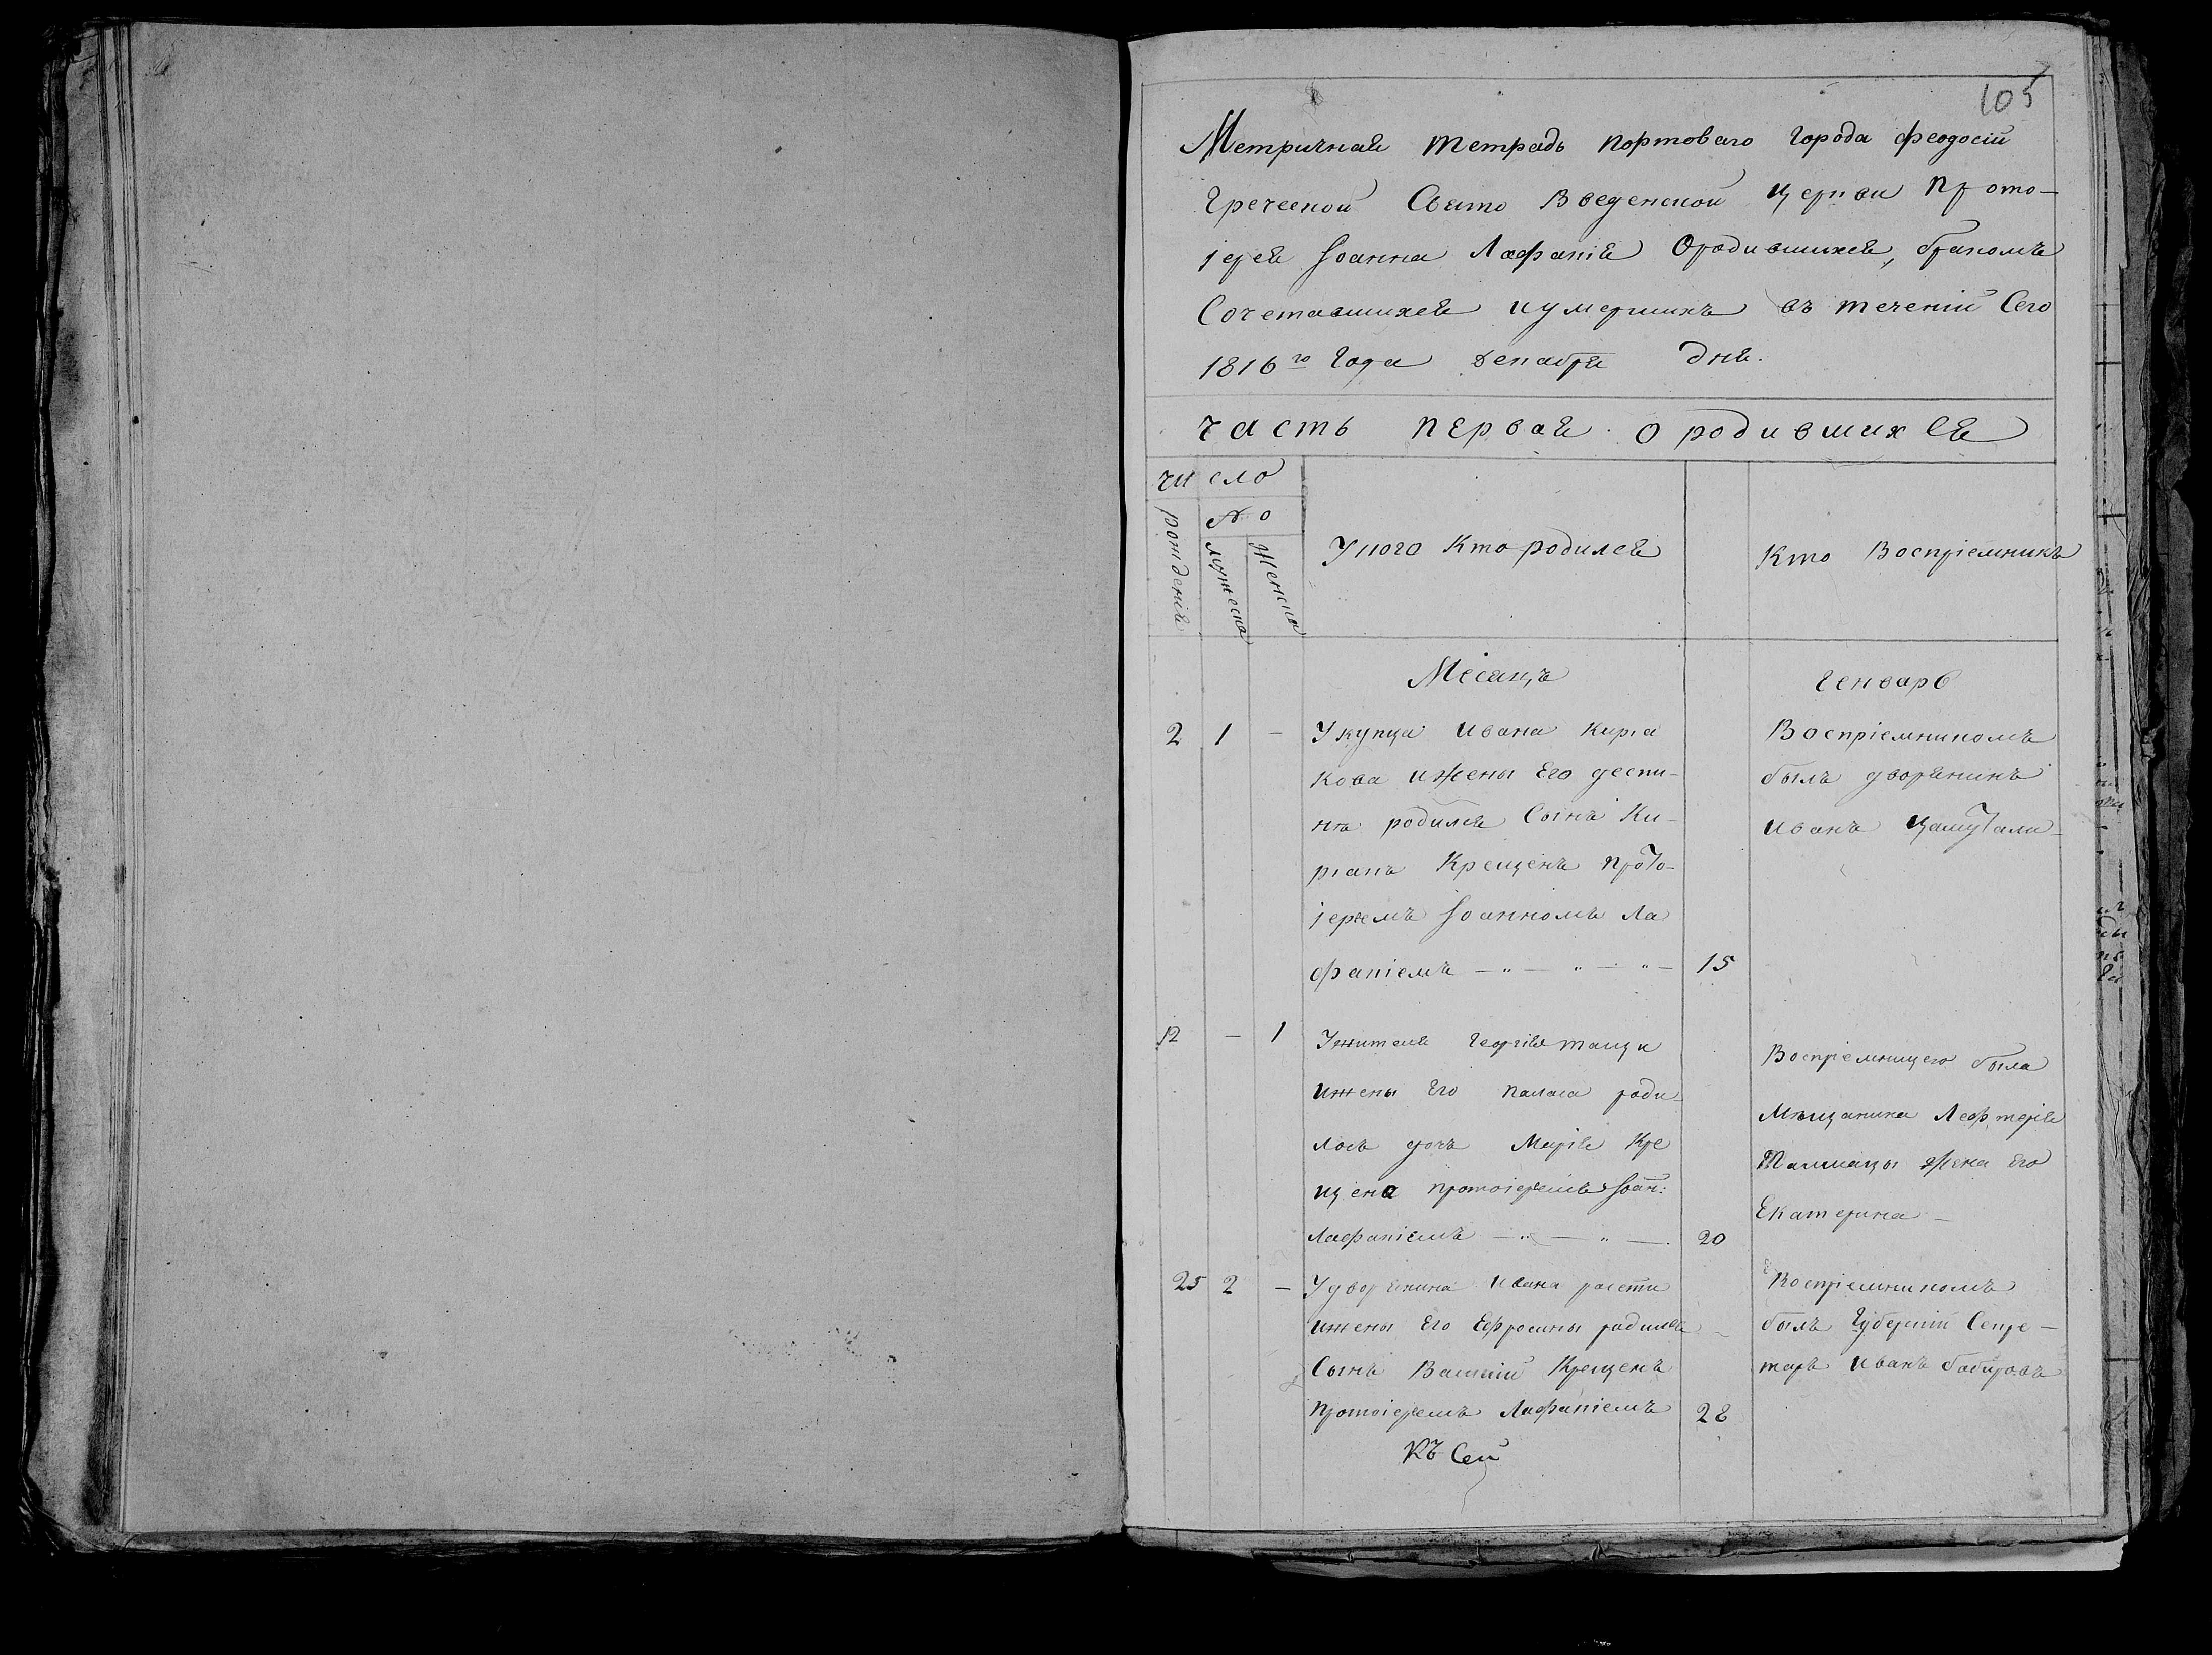 105
Метричная тетрадь портоваго города феодосіи
греческой Свято Введенской церкви прото-
іерея Іоанна Лафанія О родившихся, бракомъ
Сочетавшихся и умершихъ въ теченіи Сего
1816го года декабря дня.
часть первая о родившихся
число
рожденія
No
мужеска
Женска
У кого Кто родился
Кто Воспріемникъ
Месяцъ
Генварь
2 1 - У купца Ивана Кирia
кова и жены Его деспи-
ны родился Сынъ Ки-
рiaнъ Крещенъ прото-
іереемъ Іоанномъ Ла
фаніемъ 15
Воспріемникомъ
былъ дворянинъ
Иванъ
12 - 1 У жителя Георгія
и жены Его роди-
лась дочь Марія Кре
щена протоіереемъ Іоан:
Лафаніемъ 20
Воспріемницею была
Мещанина Лефтерія
жена Его
Екатерина
25 2 - У дворянина Ивана
и жены Его Ефросины родился
Сынъ Василій Крещенъ
протоіереемъ Лафаніемъ 28
Воспріемникомъ
былъ Губерніи Секре-
тарь Иванъ
Къ Сей